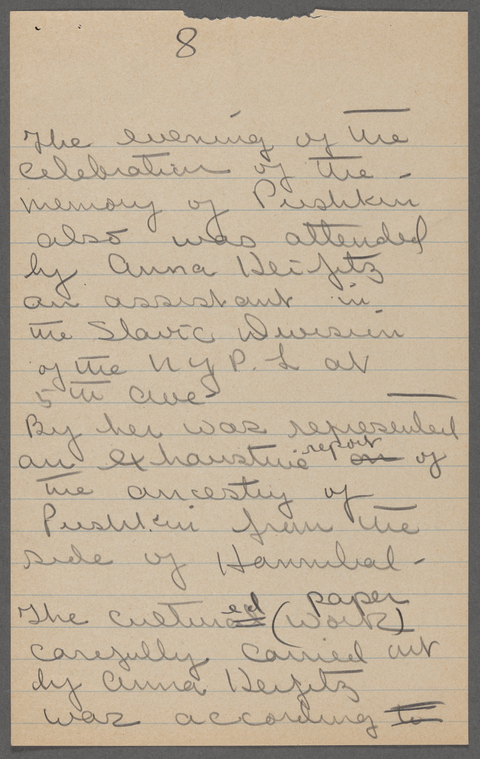 8
The evening of the
celebration of the
memory of Pushkin
also was attended
by Anna Heifitz
an assistant in
the Slavic Division
of the N Y P. L at
5th Ave
By her was represented
an exhaustive report on of
the ancestry of
Pushkin from the
side of Hannibal -
The cultured paper
(work)
carefully carried out
by Anna Heifitz
was according to